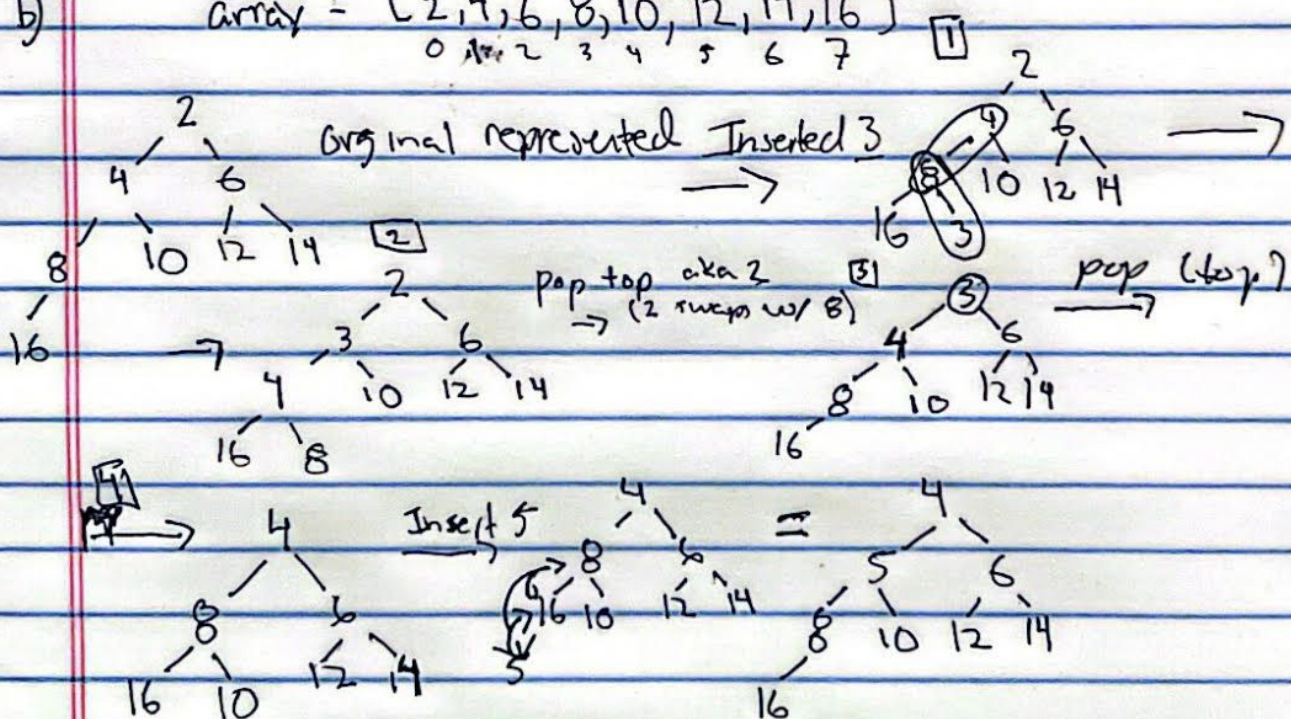 b) array = [2,4,6,8,10,12,14,16]
0 2 3 4 5 6 7
1
2
4 6
8 10 12 14
16
orginal represented
Inserted 3
2
4 6
8 10 12 14
16 3
2
2
3 6
4 10 12 14
16 8
pop top aka 2
(2 swaps w/ 8)
3
3
4 6
8 10 12 14
16
pop (top)
4
4
8 6
16 10 12 14
Insert 5
4
8 6
16 10 12 14
5
=
4
5 6
8 10 12 14
16